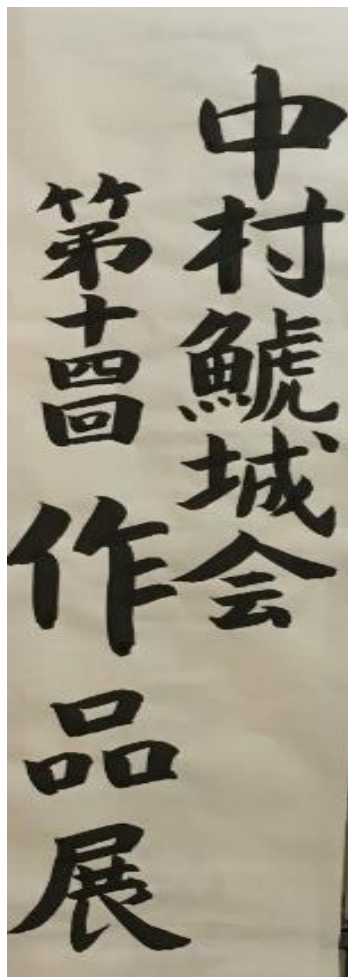 中村鯱城会
第十四回 作品展